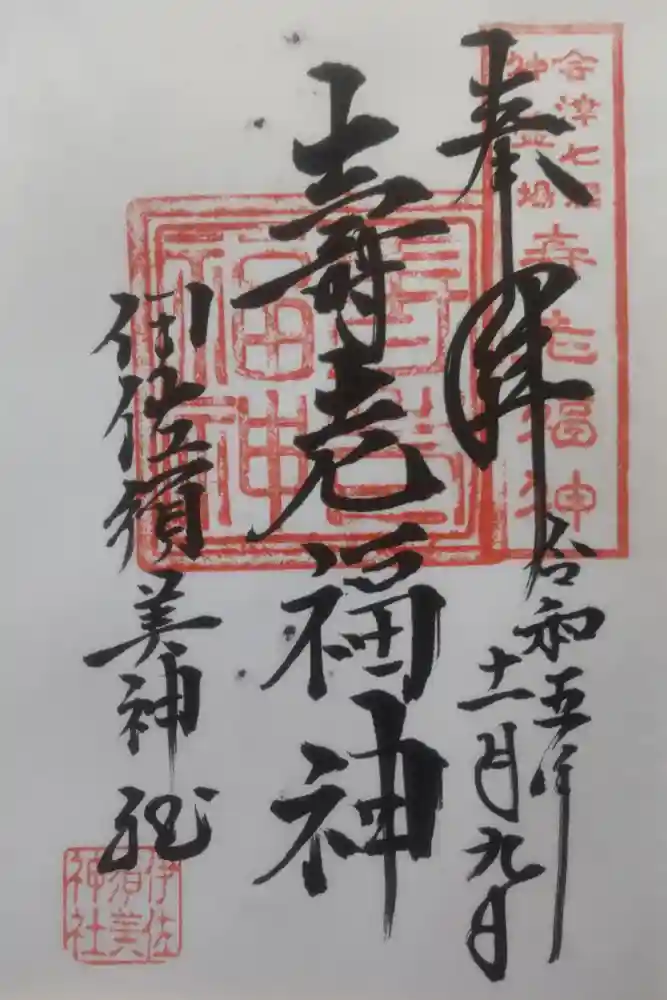 奉拝
令和五年
十一月九日
会津七福
神霊場
寿老福神
壽老福神
寿老
福神
伊佐須美神社
伊佐
須美
神社